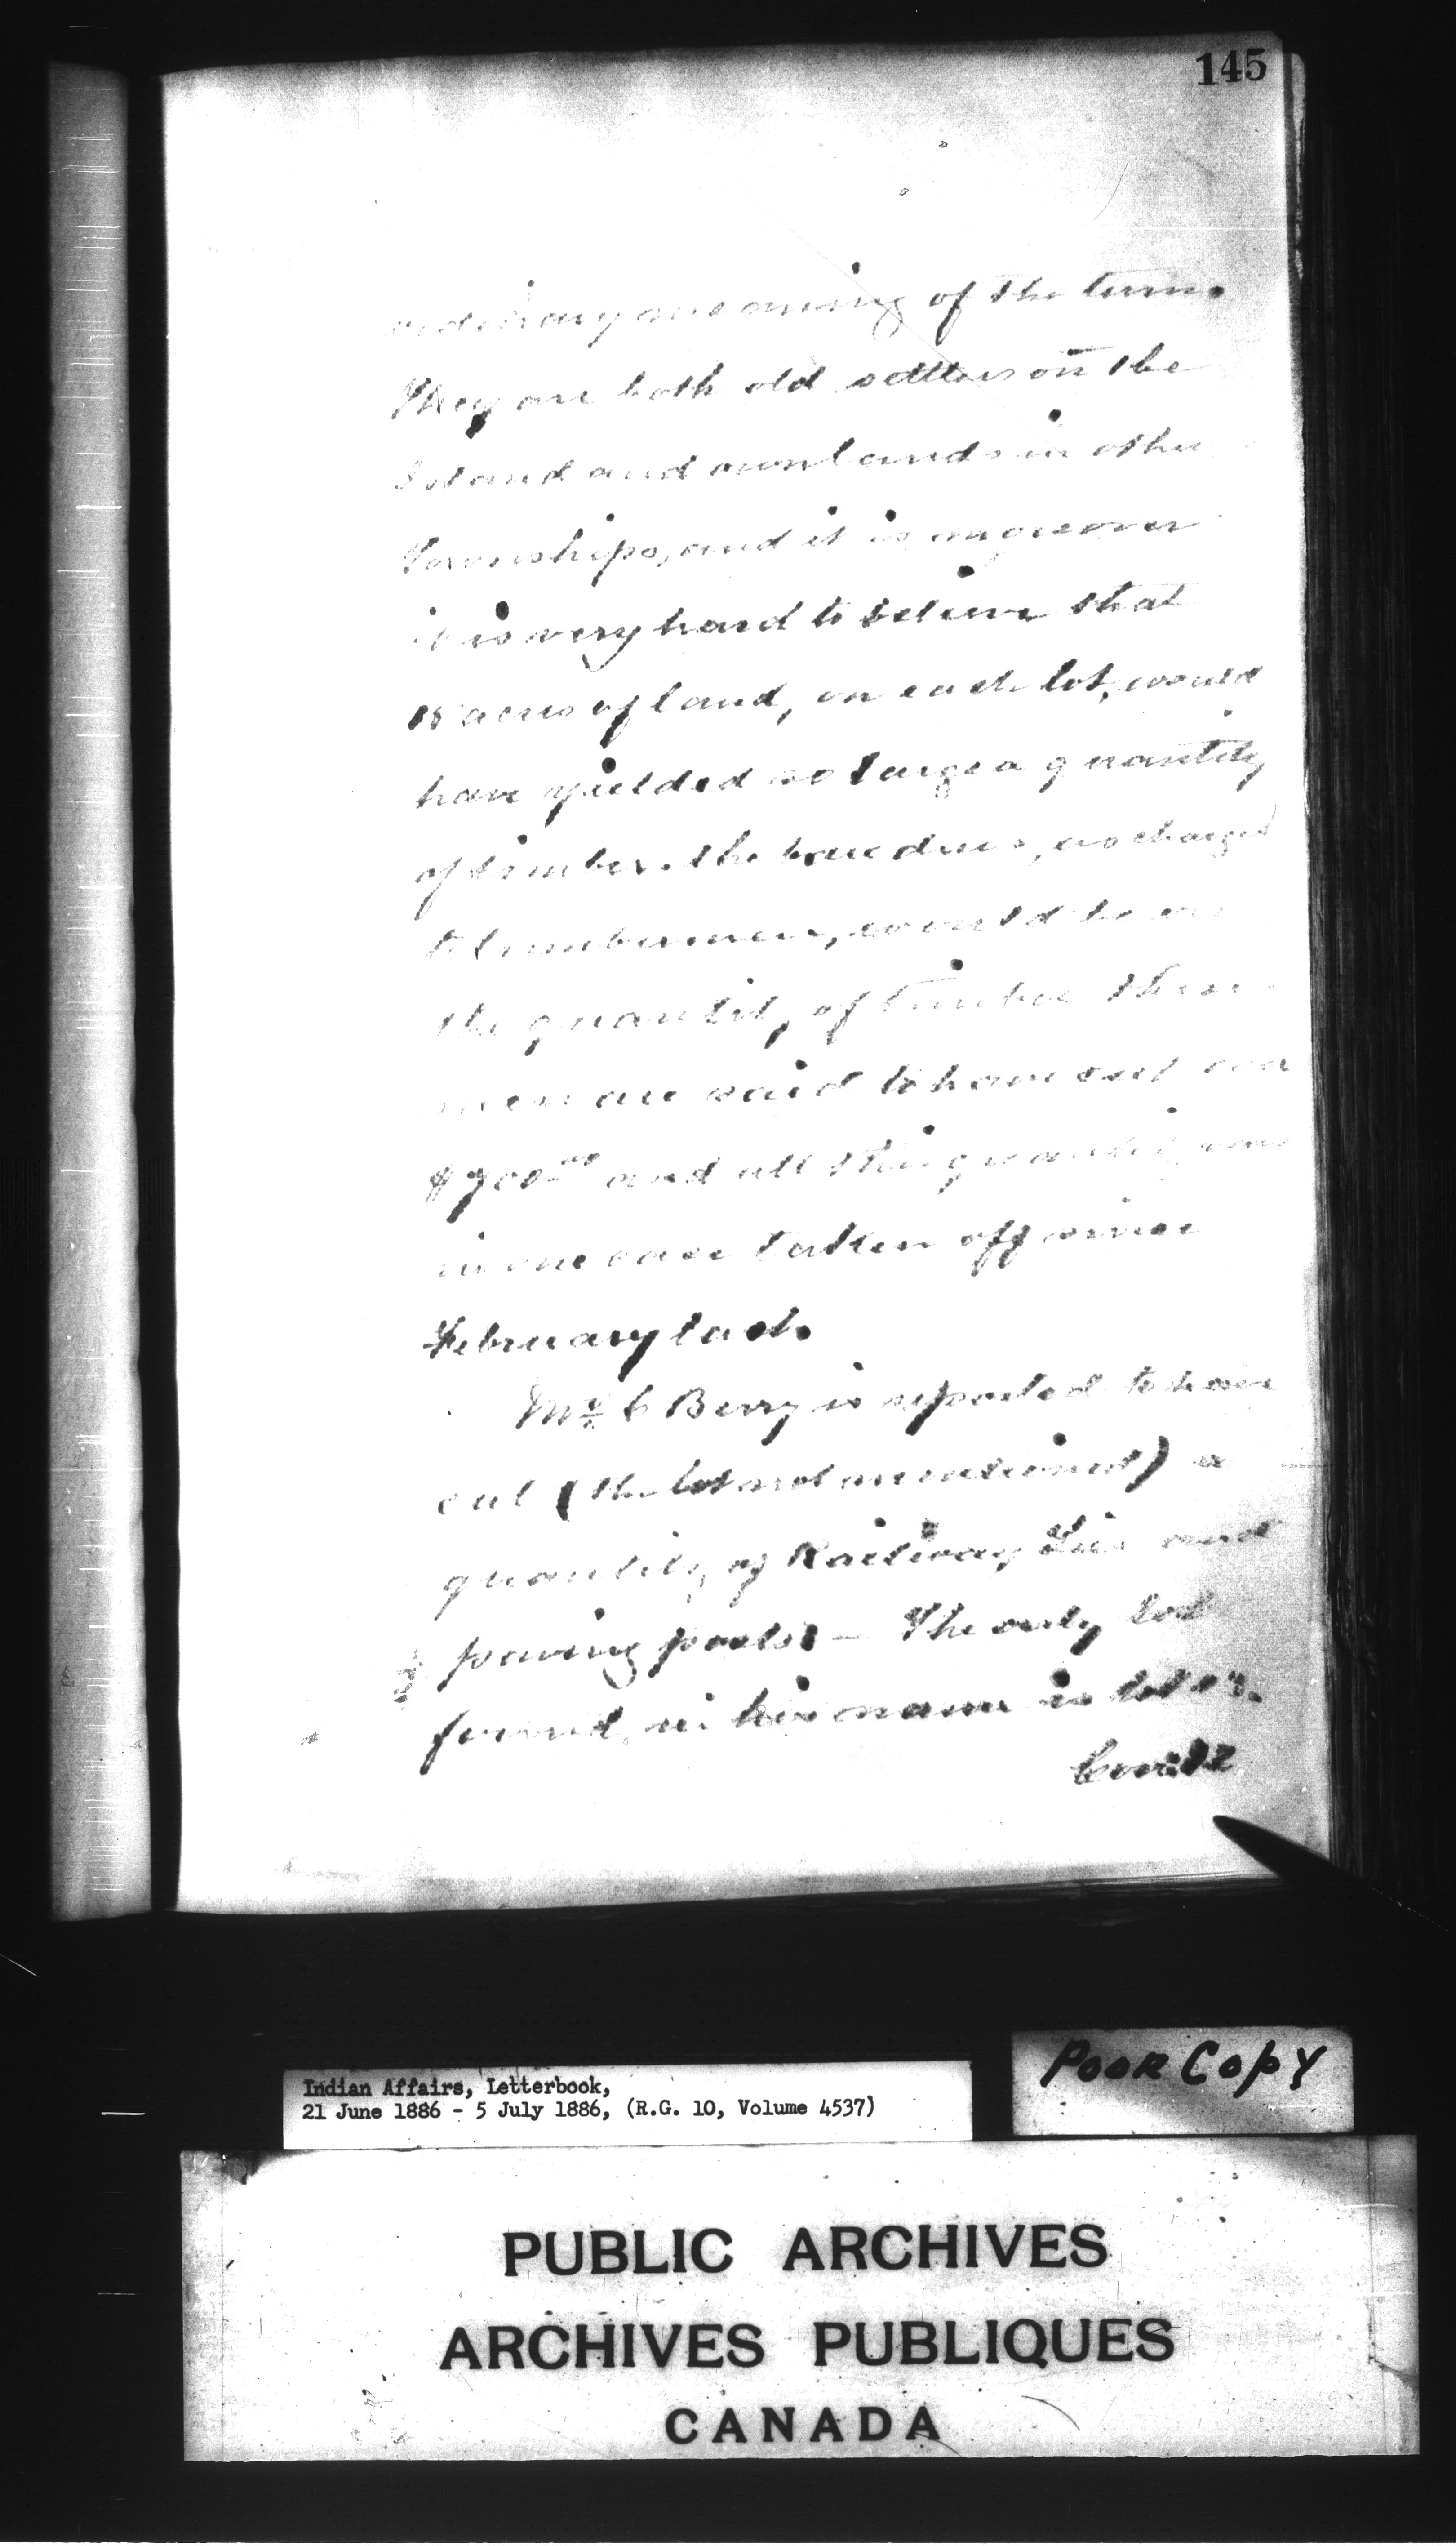 145
ordinary meaning of the term.
They are both old settlers on the
Island and own lands in other
Townships, and it is moreover
it is very hard to believe that
15 acres of land, on each lot, would
have yielded so large a quantity
of timber. The bare dues, as charged
to lumbermen, would be on
the quantity of timber these
men are said to have cut over
$700.00 and all this quantity was
in one case taken off since
February last.
Mr. C Berry is reported to have
cut (the lot not mentioned) a
quantity of Railway Ties and
paving posts - The only lot
found, in his name is lot 13.
Con: 12
Indian Affairs, Letterbook,
21 June 1886 - 5 July 1886, (R.G. 10, Volume 4537)
POOR COPY
PUBLIC ARCHIVES
ARCHIVES PUBLIQUES
CANADA